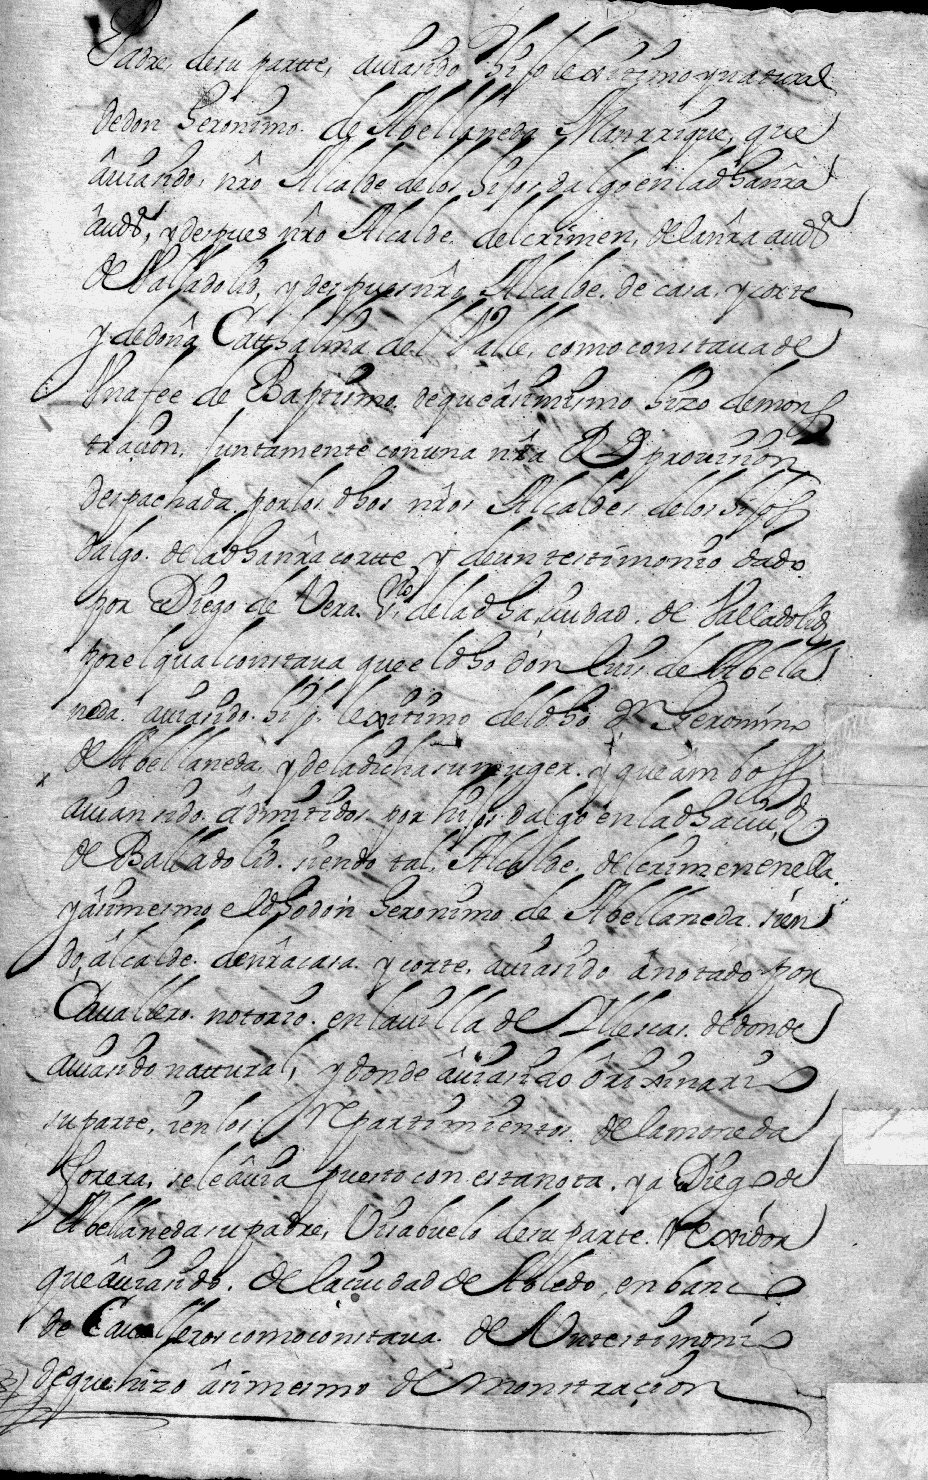 Padre desu partte, auia sido hijo lexitimo y natural
dedon Geronimo de Abellaneda Manrrique, que
auia sido, nro Alcalde delos hijos dalgo en la dha nra
audª, y despues nro Alcalde del crimen, dela nra audª
de Valladolid, y despues nro Alcalde de casa y corte
y de doña Catthalina del Valle, como constaua de
Vna fee de Baptismo de que asimismo hizo demons
traçion, Juntamente con una nra Rl prouission
despachada por los dhos nros Alcaldes delos hijos
dalgo de la dha nra corte y de un testimonio dado
por Diego de Vera, dela dha çiudad de Valladolid
por el qual constaua que el dho don Luis de Abella
neda auia sido hijo lexitimo del dho Dn Geronimo
de Abellaneda y dela dicha su muger y que ambos
auian sido admitidos por hijos dalgo en la dha ciud
de Balladolid siendo tal Alcalde del crimen en ella
y asimesmo el dho don Geronimo de Abellaneda sien
do alcalde de nra casa y corte, auia sido anotado por
Cauallero notorio en la uilla de Yllescas de donde
auia sido nattural, y donde auia sido originario
su parte, y en los Repartimientos de la moneda
forera, se le auia puesto con esta nota, y a Diego de
Abellaneda su padre, Visabuelo de su parte Rexidor
que auia sido de la ciudad de Toledo, en banco
de Caualleros como constaua de Vn testimonio
de que hizo asimesmo demonstraçion